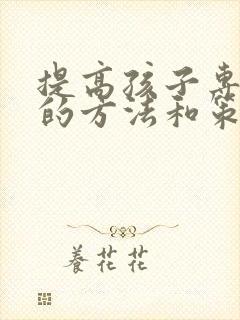 提高孩子专
的方法和策
養花花